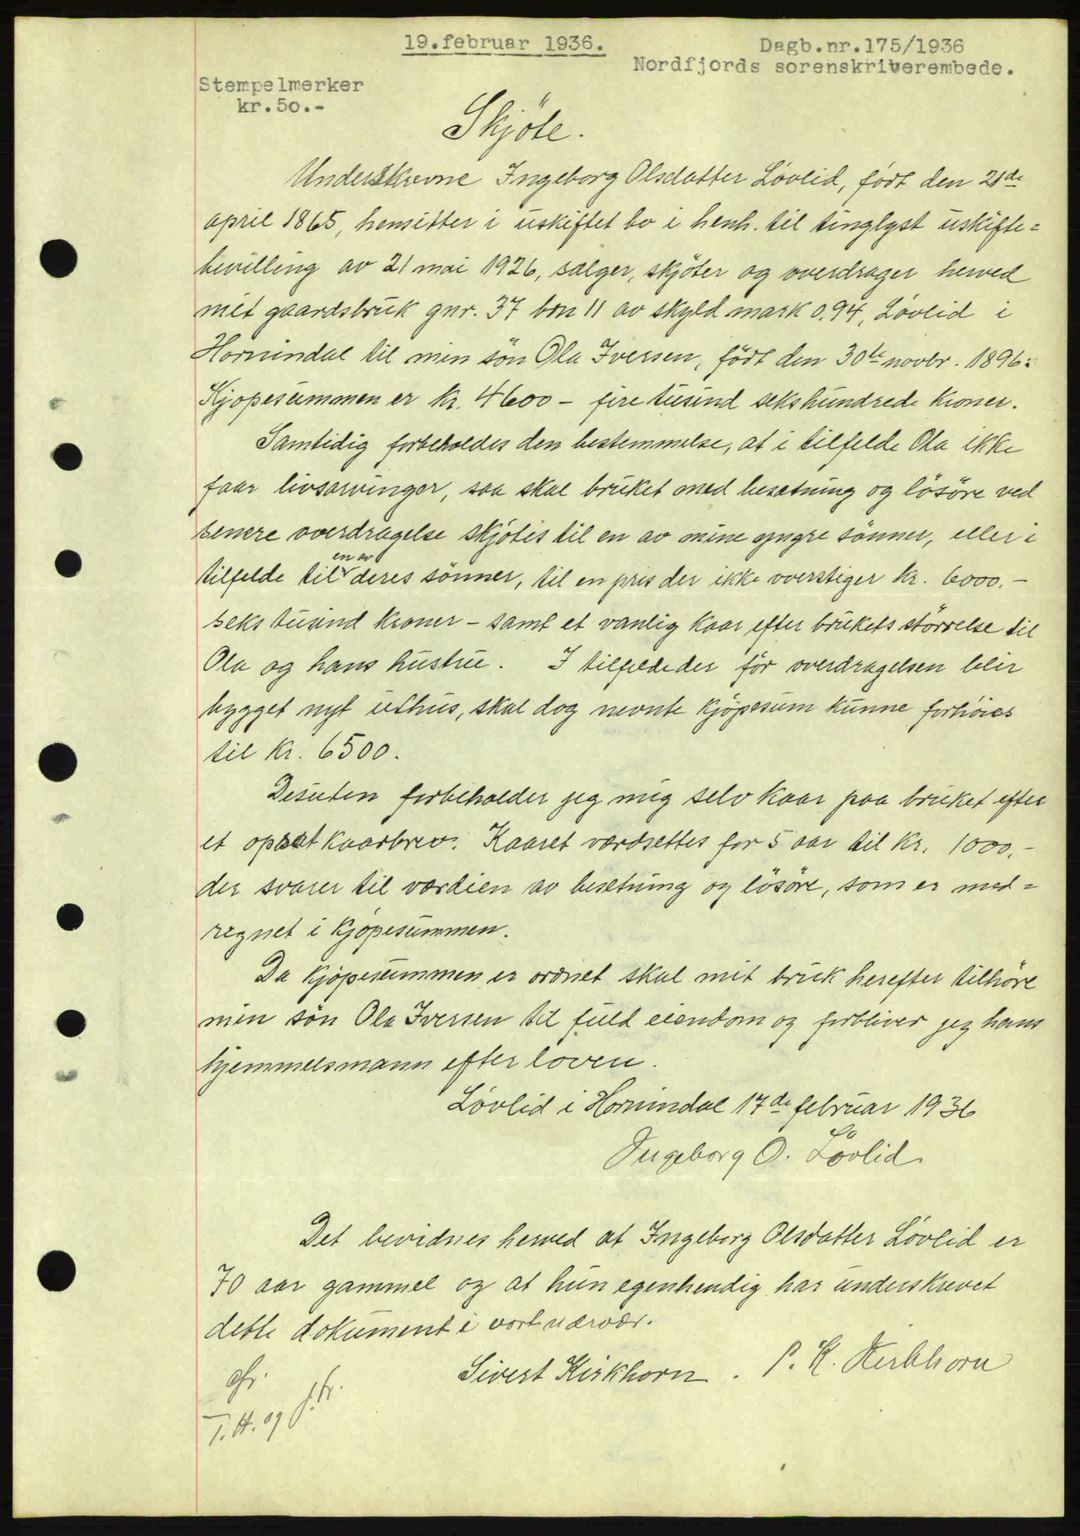 19.februar 1936.
Dagb.nr.175/1936
Nordfjords sorenskriverembede.
Stempelmerker
kr.50.-
Skjöte.
Underskrevne Ingeborg Olsdatter Lövlid, født den 21de
april 1865, hensitter i uskiftet bo i henh. til tinglyst uskifte=
bevilling av 21 mai 1926, sælger, skjöter og overdrager herved
mit gaardsbruk gnr. 37 bnr 11 av skyld mark 0.94, Lövlid i
Hornindal til min sön Ola Iversen, født den 30te novbr. 1896.
Kjøpesummen er kr. 4600 - fire tusind sekshundrede kroner.
Samtidig forbeholdes den bestemmelse, at i tilfelde Ola ikke
faar livsarvinger, saa skal bruket med besætning og lösöre ved
senere overdragelse skjötes til en av mine yngre sönner, eller i
tilfelde til en av deres sönner, til en pris der ikke overstiger kr. 6000.-
seks tusind kroner - samt et vanlig kaar efter brukets störrelse til
Ola og hans hustru. I tilfelde der för overdragelsen blir
bygget nyt uthus, skal dog nevnte kjöpesum kunne forhöies
til kr. 6500.
Desuten forbeholder jeg mig selv kaar paa bruket efter
et opsat kaarbrev. Kaaret værdsettes for 5 aar til kr. 1000.-
der svarer til værdien av besetning og lösöre, som er med=
regnet i kjöpesummen.
Da kjöpesummen er ordnet skal mit bruk herefter tilhöre
min sön Ola Iversen til fuld eiendom og forbliver jeg hans
hjemmelsmann efter loven.
Lövlid i Hornindal 17de februar 1936
Ingeborg O. Lövlid
Det bevidnes herved at Ingeborg Olsdatter Lövlid er
70 aar gammel og at hun egenhendig har underskrevet
dette dokument i vort nærvær.
Sivert Kirkhorn. P. K. Kirkhorn
gfr.
T.H. og J.h.